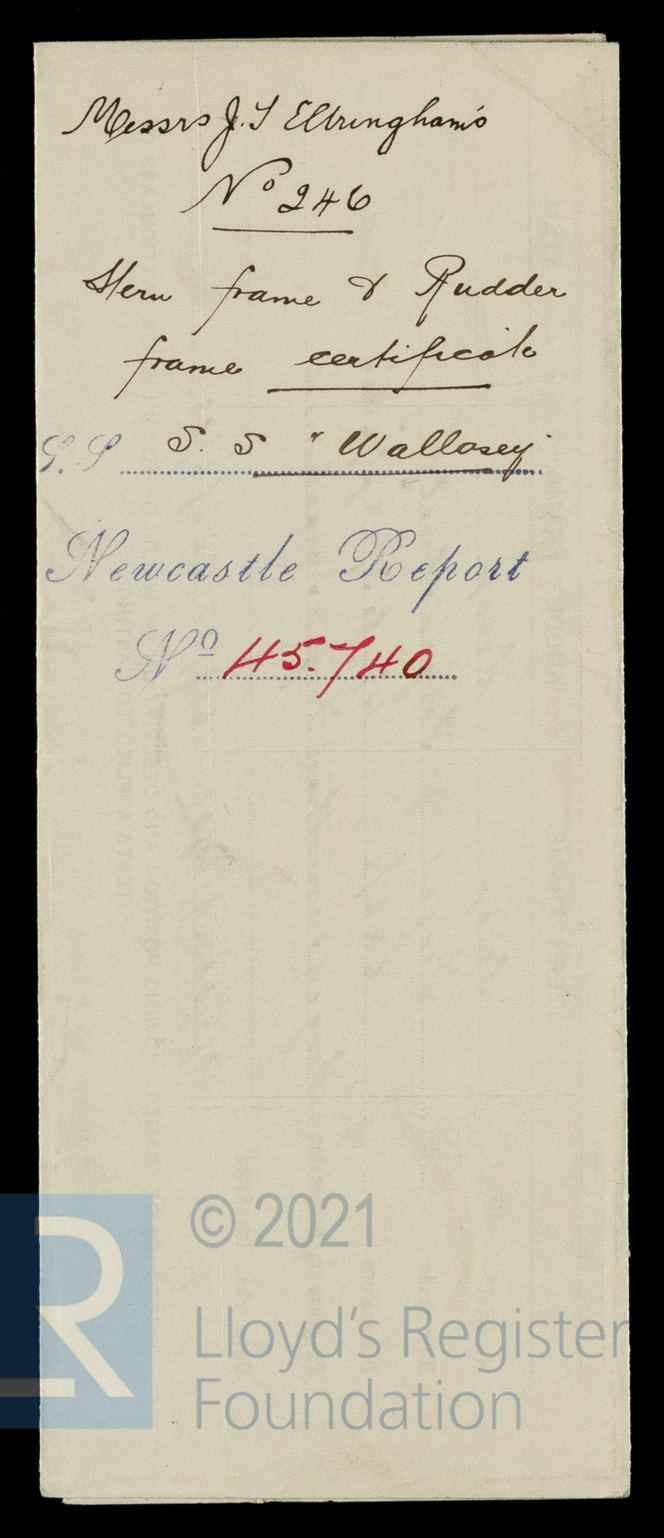 Messrs J. T Eltringham's
No 246
Stern frame & Rudder
frame certificate
S.S S. S "Wallasey"
Newcastle Report
No 45.740
© 2021
Lloyd's Register
Foundation